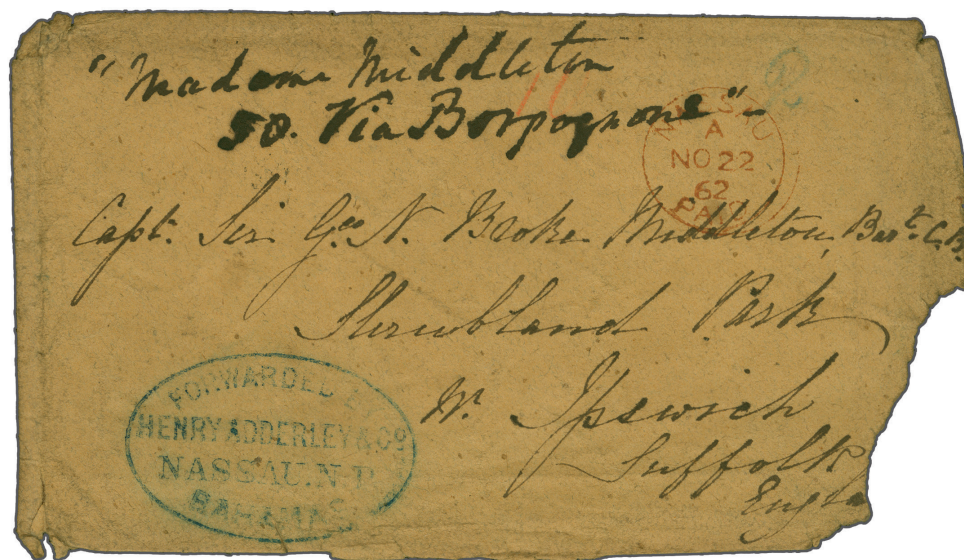 "Madame Middleton
50. Via Borpognone"
NASSAU
A
NO 22
62
PAID
Capt. Sir Geo N. Broke Middleton, Bart. C.B.
Shrubland Park
Nr. Ipswich
Suffolk
Engla
FORWARDED BY
HENRY ADDERLEY & Co
NASSAU. N.P.
BAHAMAS